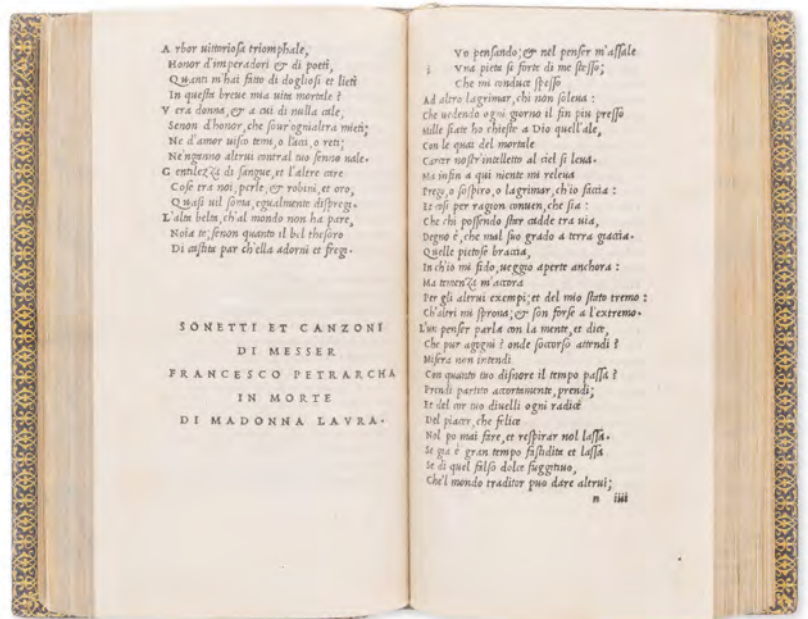 A rbor uittoriosa triomphale,
Honor d'imperadori & di poeti,
Quanti m'hai fatto di dogliosi et lieti
In questa breue mia uita mortale ?
V era donna, & a cui di nulla cale,
Senon d'honor, che sour'ognialtra mieti;
Ne d'amor uisco temi, o lacci, o reti;
Ne'nganno altrui contra'l tuo senno uale.
G entilezza di sangue, et l'altre care
Cose tra noi, perle, & robini, et oro,
Quasi uil soma, egualmente dispregi.
L'alta belta, ch'al mondo non ha pare,
Noia te; senon quanto il bel thesoro
Di castita par ch'ella adorni et fregi.
SONETTI ET CANZONI
DI MESSER
FRANCESCO PETRARCHA
IN MORTE
DI MADONNA LAVRA.
Vo pensando; & nel penser m'assale
i Vna pieta si forte di me stesso;
Che mi conduce spesso
Ad altro lagrimar, chi non soleua :
Che uedendo ogni giorno il fin piu presso
Mille fiate ho chieste a Dio quell'ale,
Con le quai del mortale
Carcer nostr'intelletto al ciel si leua.
Ma infin a qui niente mi releua
Prego, o sospiro, o lagrimar, ch'io faccia :
Et cosi per ragion conuen, che sia :
Che chi possendo star cadde tra uia,
Degno è, che mal suo grado a terra giaccia.
Quelle pietose braccia,
In ch'io mi fido, ueggio aperte anchora :
Ma temenza m'accora
Per gli altrui exempi; et del mio stato tremo :
Ch'altri mi sprona; & son forse a l'extremo.
L'un penser parla con la mente, et dice,
Che pur agogni ? onde soccorso attendi ?
Misera non intendi
Con quanto tuo disnore il tempo passa ?
Prendi partito accortamente, prendi;
Et del cor tuo diuelli ogni radice
Del piacer, che felice
Nol po mai fare, et respirar nol lassa.
Se gia è gran tempo fastidita et lassa
Se di quel falso dolce fuggitiuo,
Che'l mondo traditor puo dare altrui;
n iiii